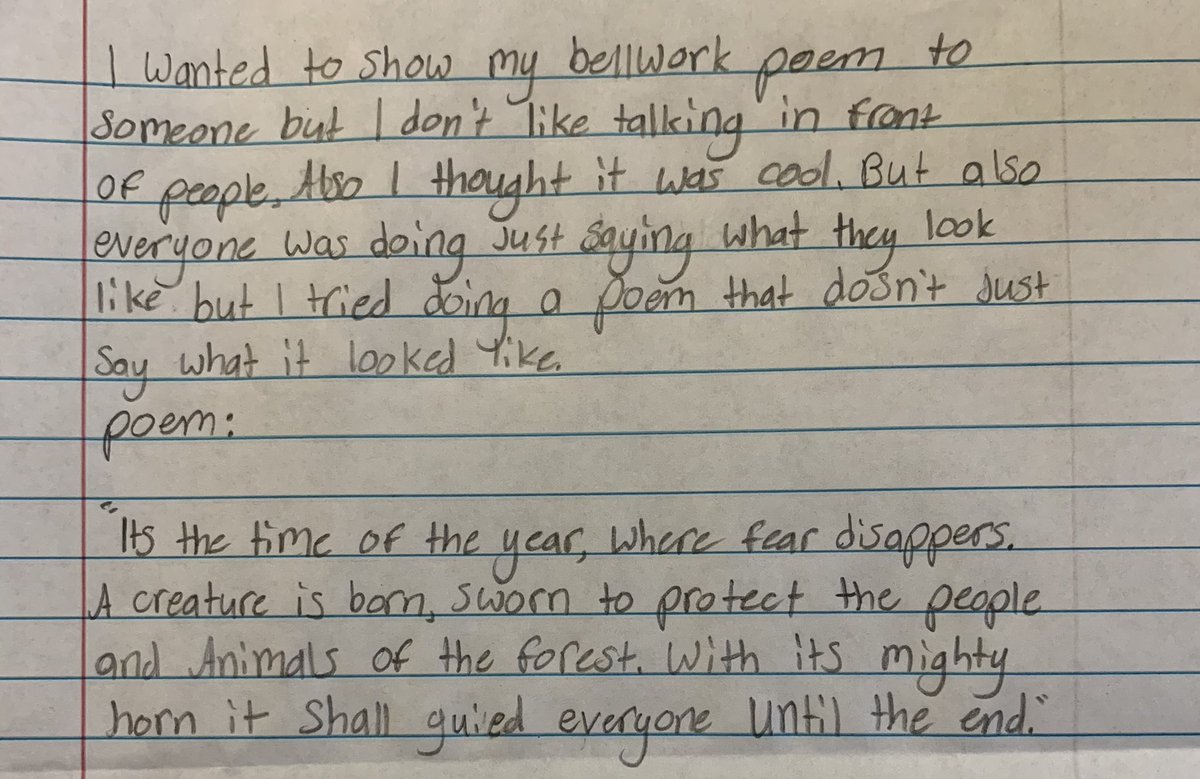 I wanted to show my bellwork poem to
someone but I don't like talking in front
of people. Also I thought it was cool. But also
everyone was doing just saying what they look
like but I tried doing a poem that dosn't just
say what it looked like.
poem:
"Its the time of the year, where fear disappers.
A creature is born, sworn to protect the people
and Animals of the forest. With its mighty
horn it shall guied everyone until the end."